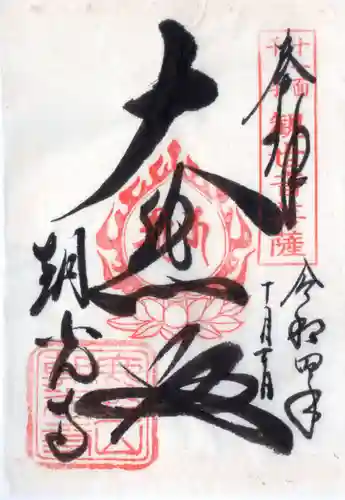 奉拝
十一面
千手
観世音菩薩
大悲殿
令和四年
十月
朝光寺